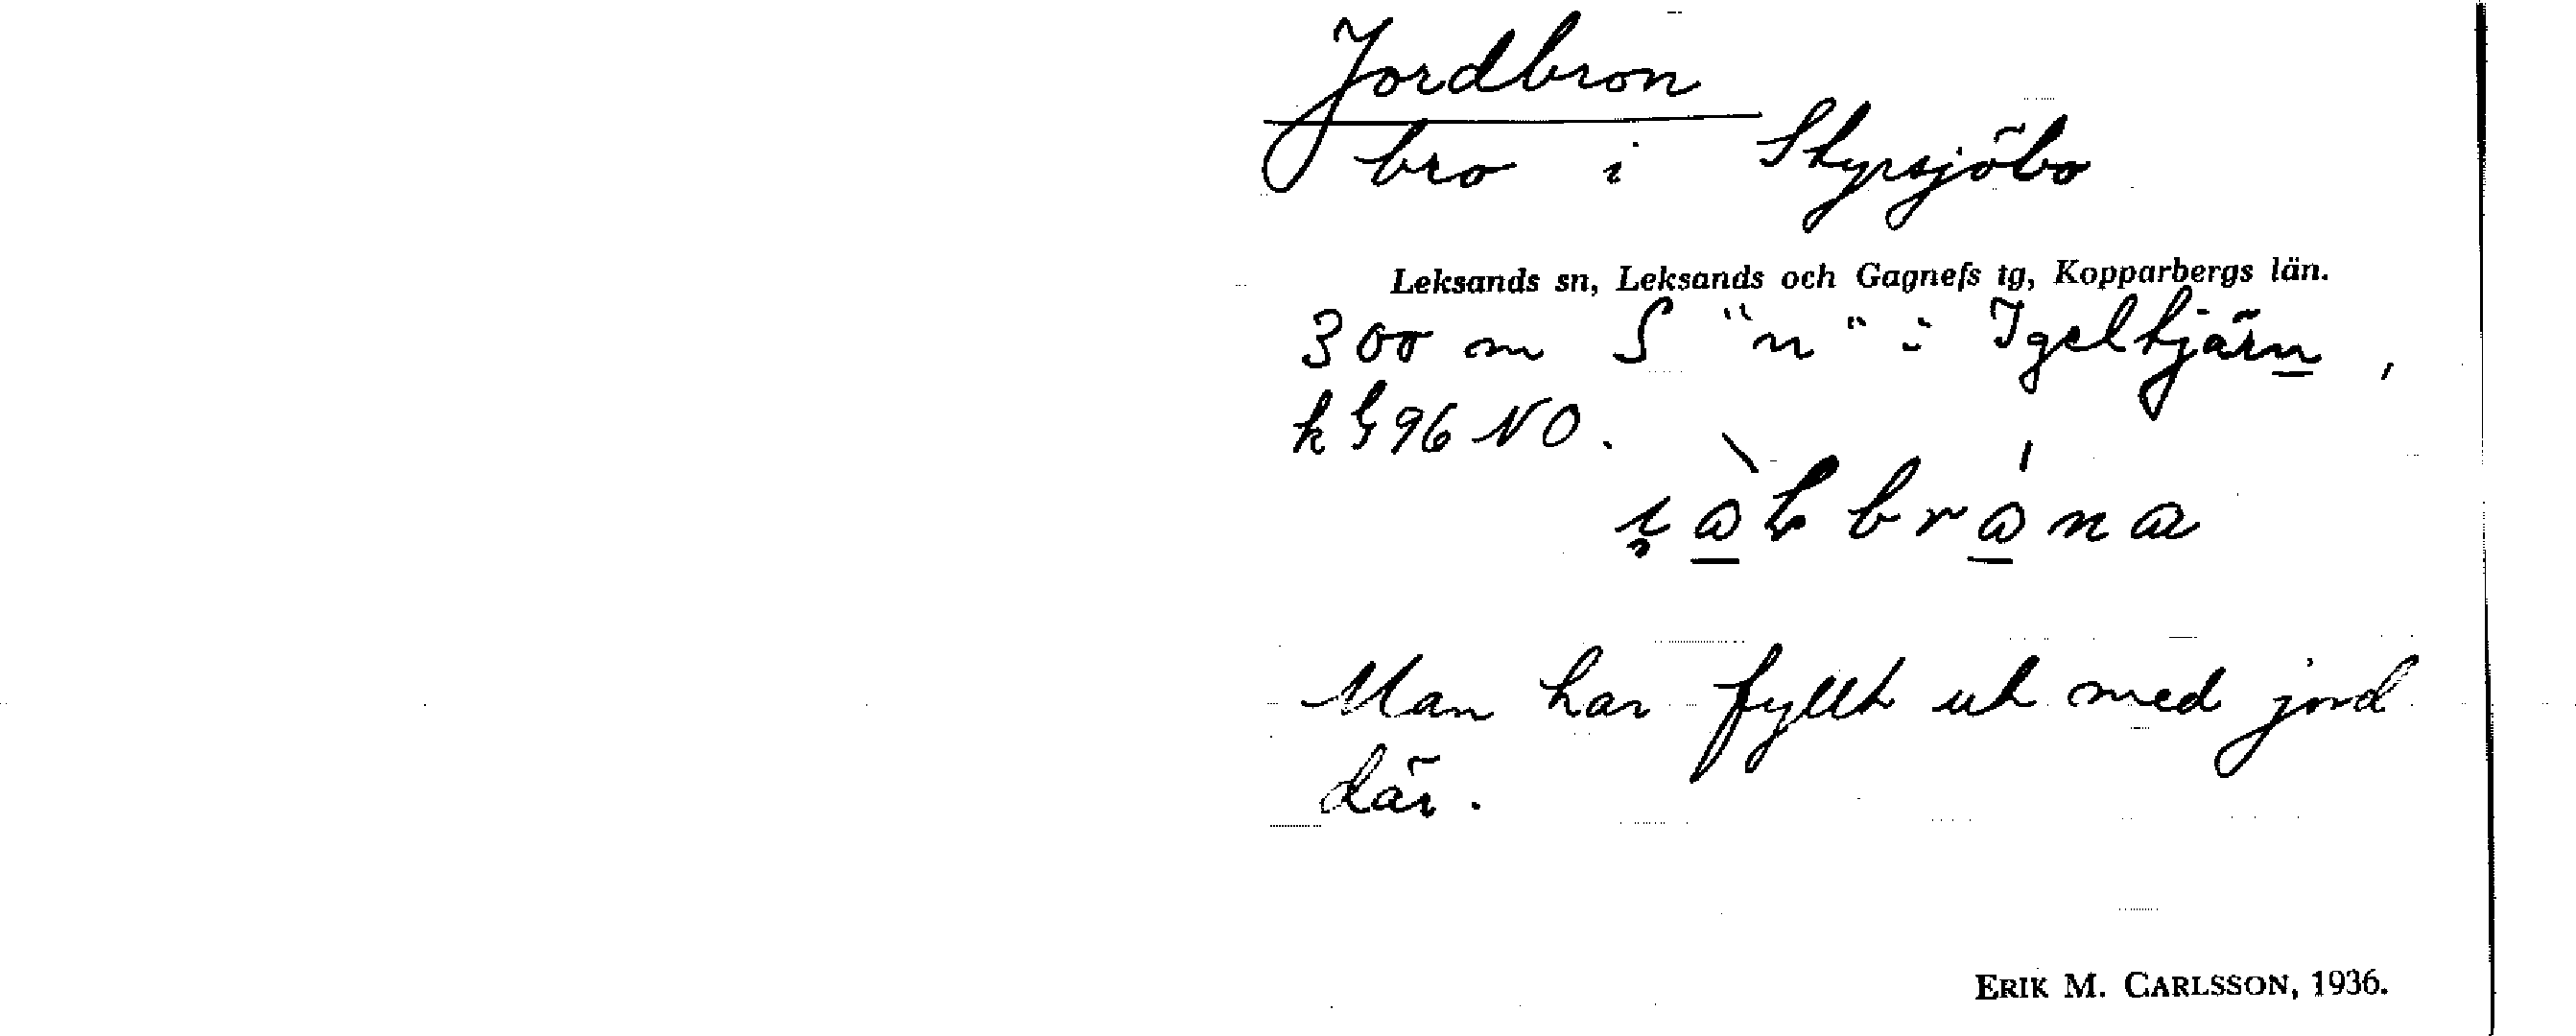 Jordbron
bro i Styrsjöbo
Leksands sn, Leksands och Gagnefs tg, Kopparbergs län.
300 m S "n" i Igeltjärn,
k G 96 NO.
Man har fyllt ut med jord
där.
ERIK M. CARLSSON, 1936.